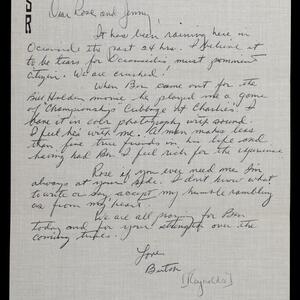 Dear Rose and Jenny,
It has been raining here in
Oceanside the past 24 hrs. I believe it
to be tears for Oceanside's most prominent
citizen. We are crushed!
When Ben came out for the
Bill Holden movie he played me a game
of "Championship Cribbage at Charlie's" I
have it in color photography with sound.
I feel he's with me. A man makes less
than five true friends in his life and
having had Ben I feel rich for the experience
Rose if you ever need me I'm
always at your side. I don't know what
to write or say accept my humble rambling
as from my heart.
We are all praying for Ben
today and for your strength over the
coming times.
Love
Burton
[(Reynolds)]